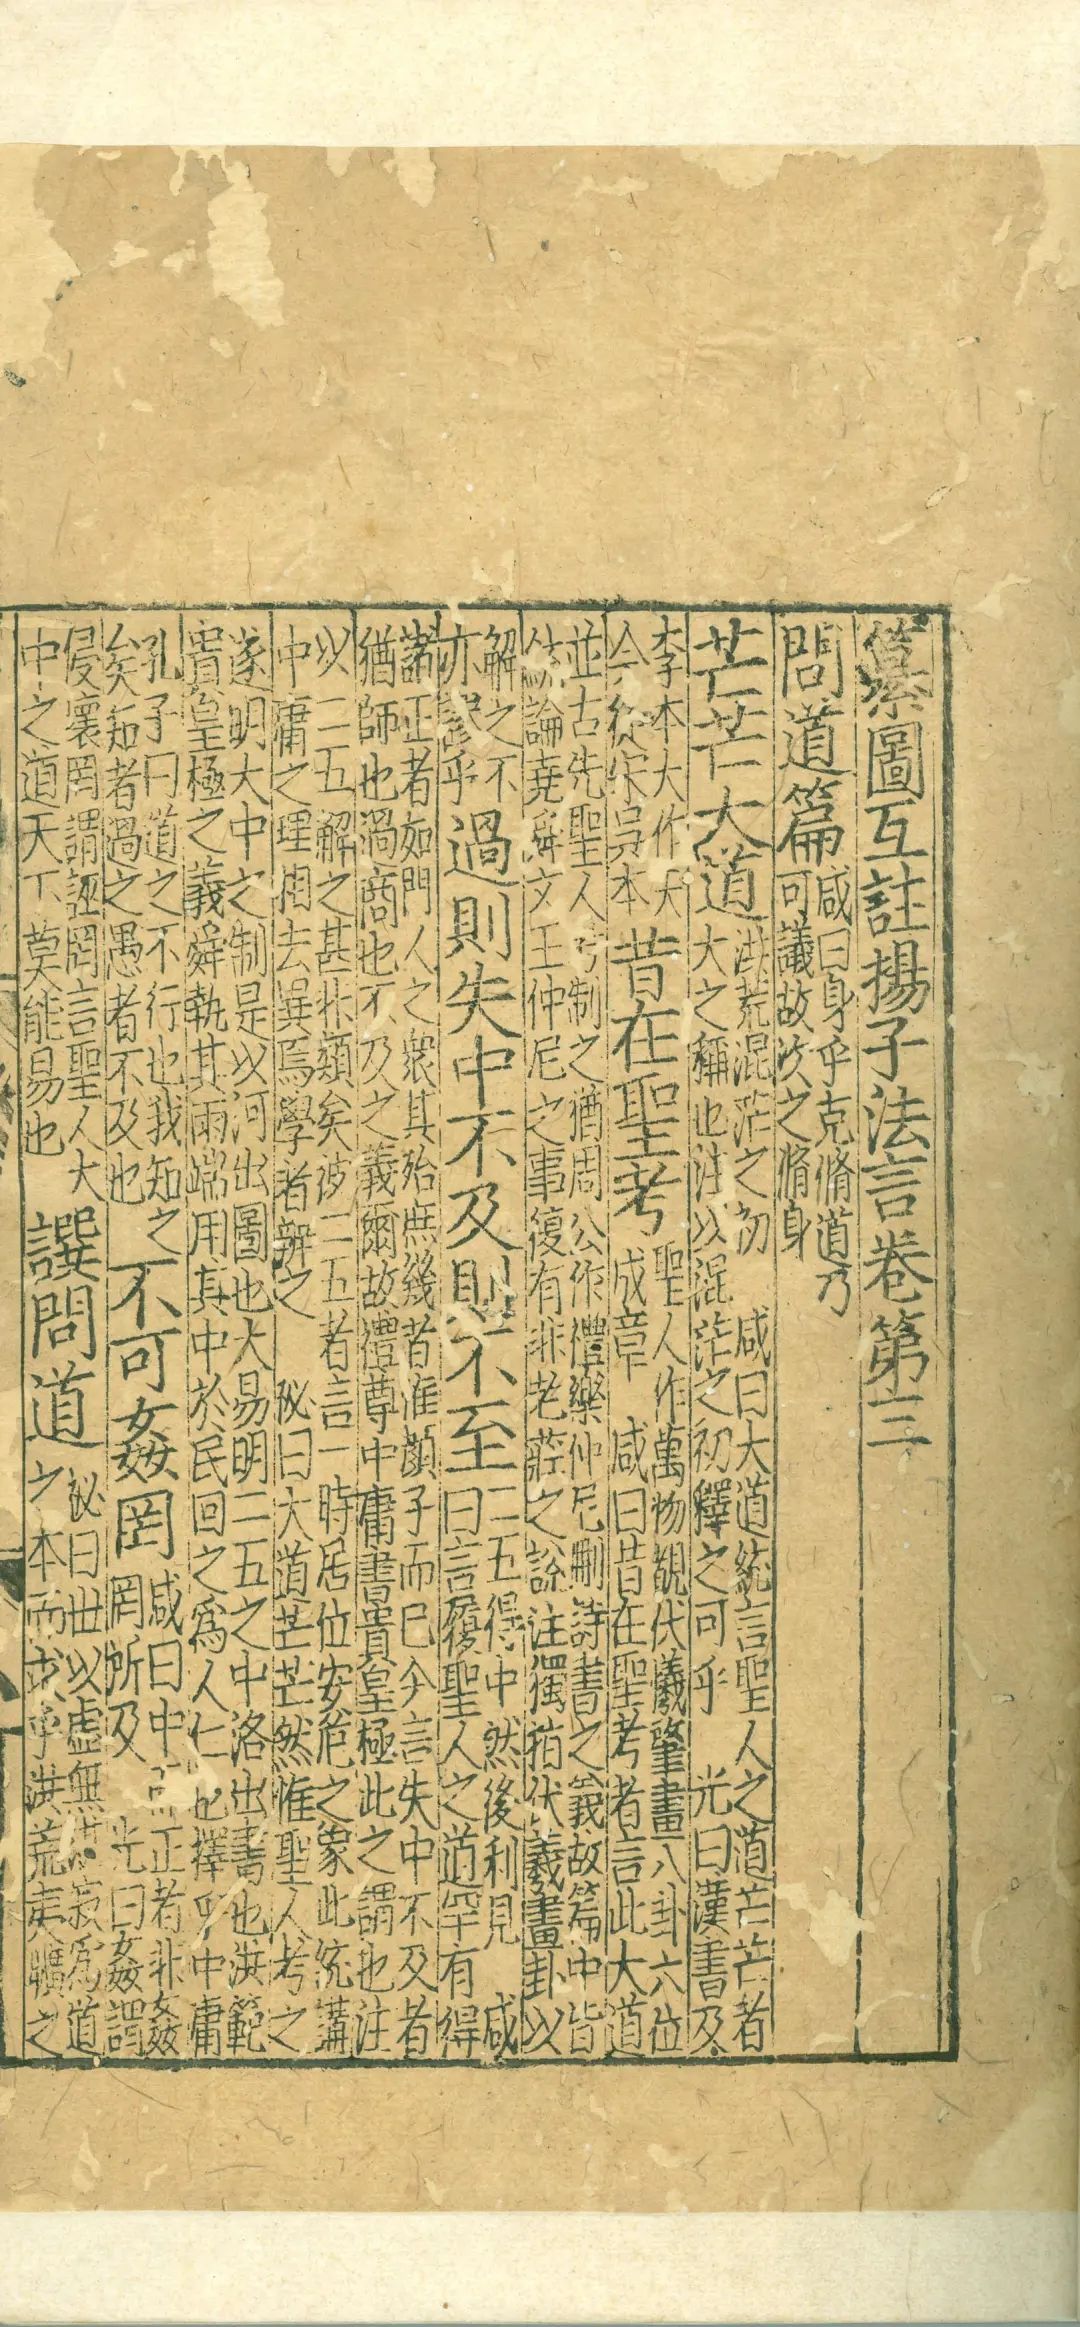 纂圖互註揚子法言卷第三
問道篇咸曰身乎克脩道乃可議故次之脩身
芒芒大道洪荒混茫之初 咸曰大道統言聖人之道芒芒者大之稱也注以混茫之初釋之可乎 光曰漢書及
李本大作天今從宋吳本昔在聖考聖人作萬物覩伏羲肇畫八卦六位成章 咸曰昔在聖考者言此大道
並古先聖人所制之猶周公作禮樂仲尼刪詩書之義故篇中皆統論堯舜文王仲尼之事復有非老莊之說注獨指伏羲畫卦以
解之不亦謬乎過則失中不及則不至二五得中然後利見 咸曰言履聖人之道罕有得
諸正者如門人之衆其殆庶幾者准顏子而已今言失中不及者猶師也過商也不及之義爾故禮尊中庸書貴皇極此之謂也注
以二五解之甚非類矣彼二五者言一時居位安危之象此統講中庸之理相去異焉學者辨之 祕曰大道芒芒然惟聖人考之
遂明大中之制是以河出圖也大易明二五之中洛出書也洪範貴皇極之義舜執其兩端用其中於民回之爲人仁也擇乎中庸
孔子曰道之不行也我知之矣知者過之愚者不及也不可姦罔咸曰中而正者非姦罔所及 光曰姦謂
侵壞罔謂誣罔言聖人大中之道天下莫能易也 譔問道祕曰世以虛無寂爲道之本而求乎洪荒夷曠之